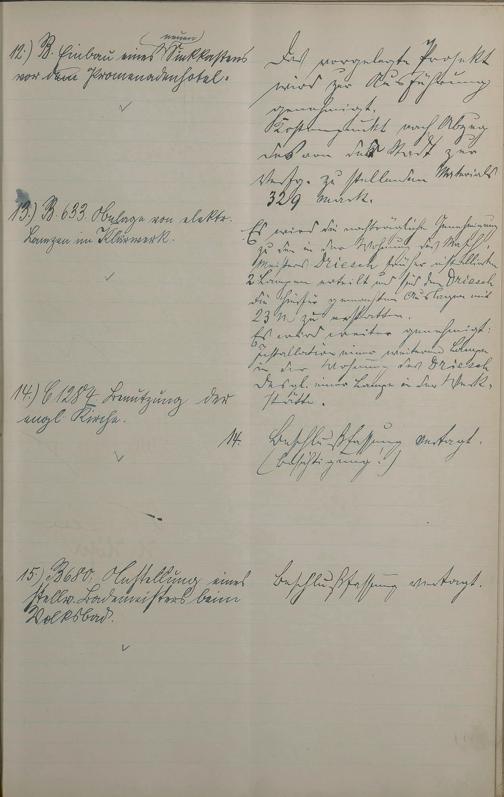 12.) B. Einbau eines neuen Sinkkastens
vor dem Promenadenhotel.
Das vorgelegte Projekt
wird zur Ausführung
genehmigt.
Kostenpunkt nach Abzug
des von der Stadt zur
Verfg. zu stellenden Materials
329 Mark.
13.) B 633. Anlage von elektr.
Lampen im Klärwerk.
Es wird die nachträgliche Genehmigung
zu den in der Wohnung des Masch.
Meisters Driesch früher installierten
2 Lampen erteilt und sind dem Driesch
die hierfür gemachten Auslagen mit
23 M zu erstatten.
Es wird weiter genehmigt:
Installation einer weiteren Lampe
in der Wohnung des Driesch
desgl. einer Lampe in der Werk-
stätte.
14.) C 1284 Benutzung der
engl. Kirche.
14. Beschlußfassung vertagt.
(Besichtigung.)
15.) B 680. Anstellung eines
stellv. Bademeisters beim
Volksbad.
Beschlußfassung vertagt.